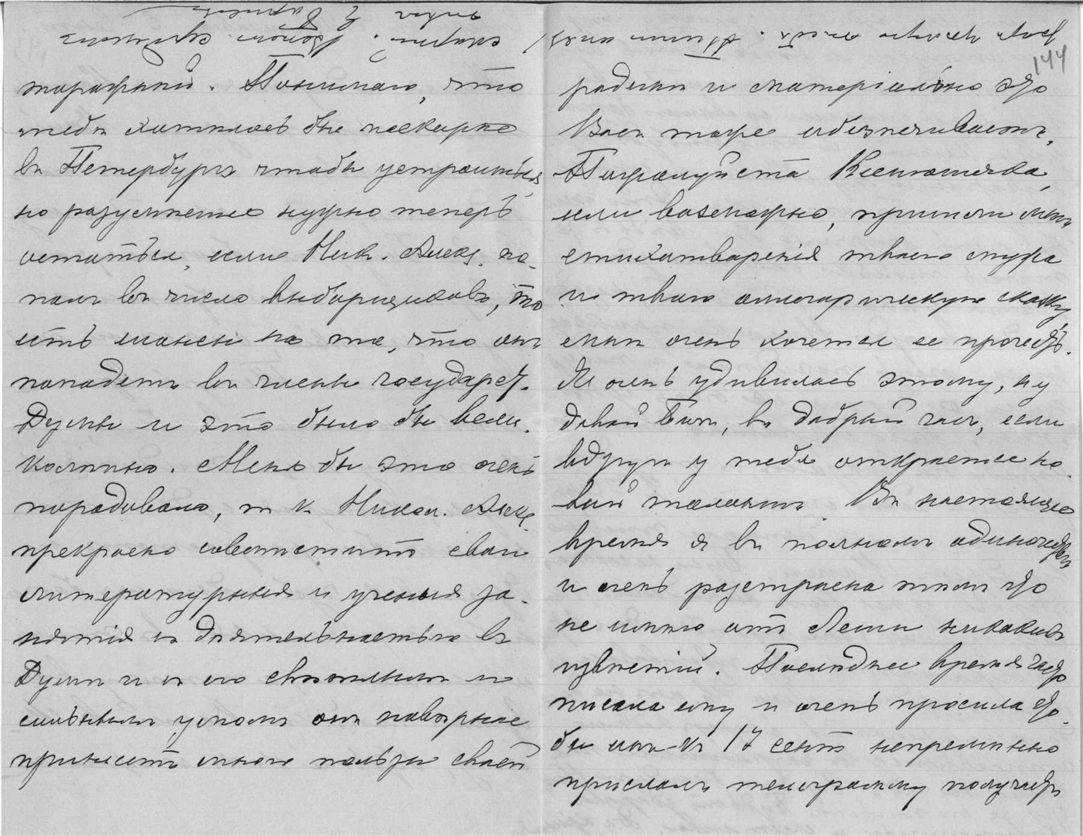 144
торафией. Понимаю, что
тебе хотелось бы поскорее
въ Петербургъ чтобы устроиться
но разумеется нужно теперь
остаться, если Ник. Алекс. по-
палъ въ число выборщиковъ, то
есть шансы на то, что онъ
попадетъ въ члены государст.
Думы и это было бы вели-
колѣпно. Меня бы это очень
порадовало, т к Никол. Алекс.
прекрасно совместитъ свои
литературныя и ученыя за-
нятія съ дѣятельностью въ
Думѣ и съ его свѣтлымъ и
сильнымъ умомъ онъ навѣрное
принесетъ много пользы своей
родинѣ и матеріально это
Васъ тоже обезпечиваетъ.
Пожалуйста Ксеньюшка,
если возможно, пришли мнѣ
стихотворенія твоего мужа
и твою аллегорическую сказку
мнѣ очень хочется ее прочесть.
Я очень удивилась этому, ну
давай Богъ, въ добрый часъ, если
вдругъ у тебя откроется но-
вый талантъ. Въ настоящее
время я въ полномъ одиночествѣ
и очень разстроена тѣмъ что
не имѣю отъ Лели никакихъ
извѣстій. Последнее время я
писала ему и очень просила что-
бы мнѣ къ 17 сент непременно
прислалъ телеграмму получить